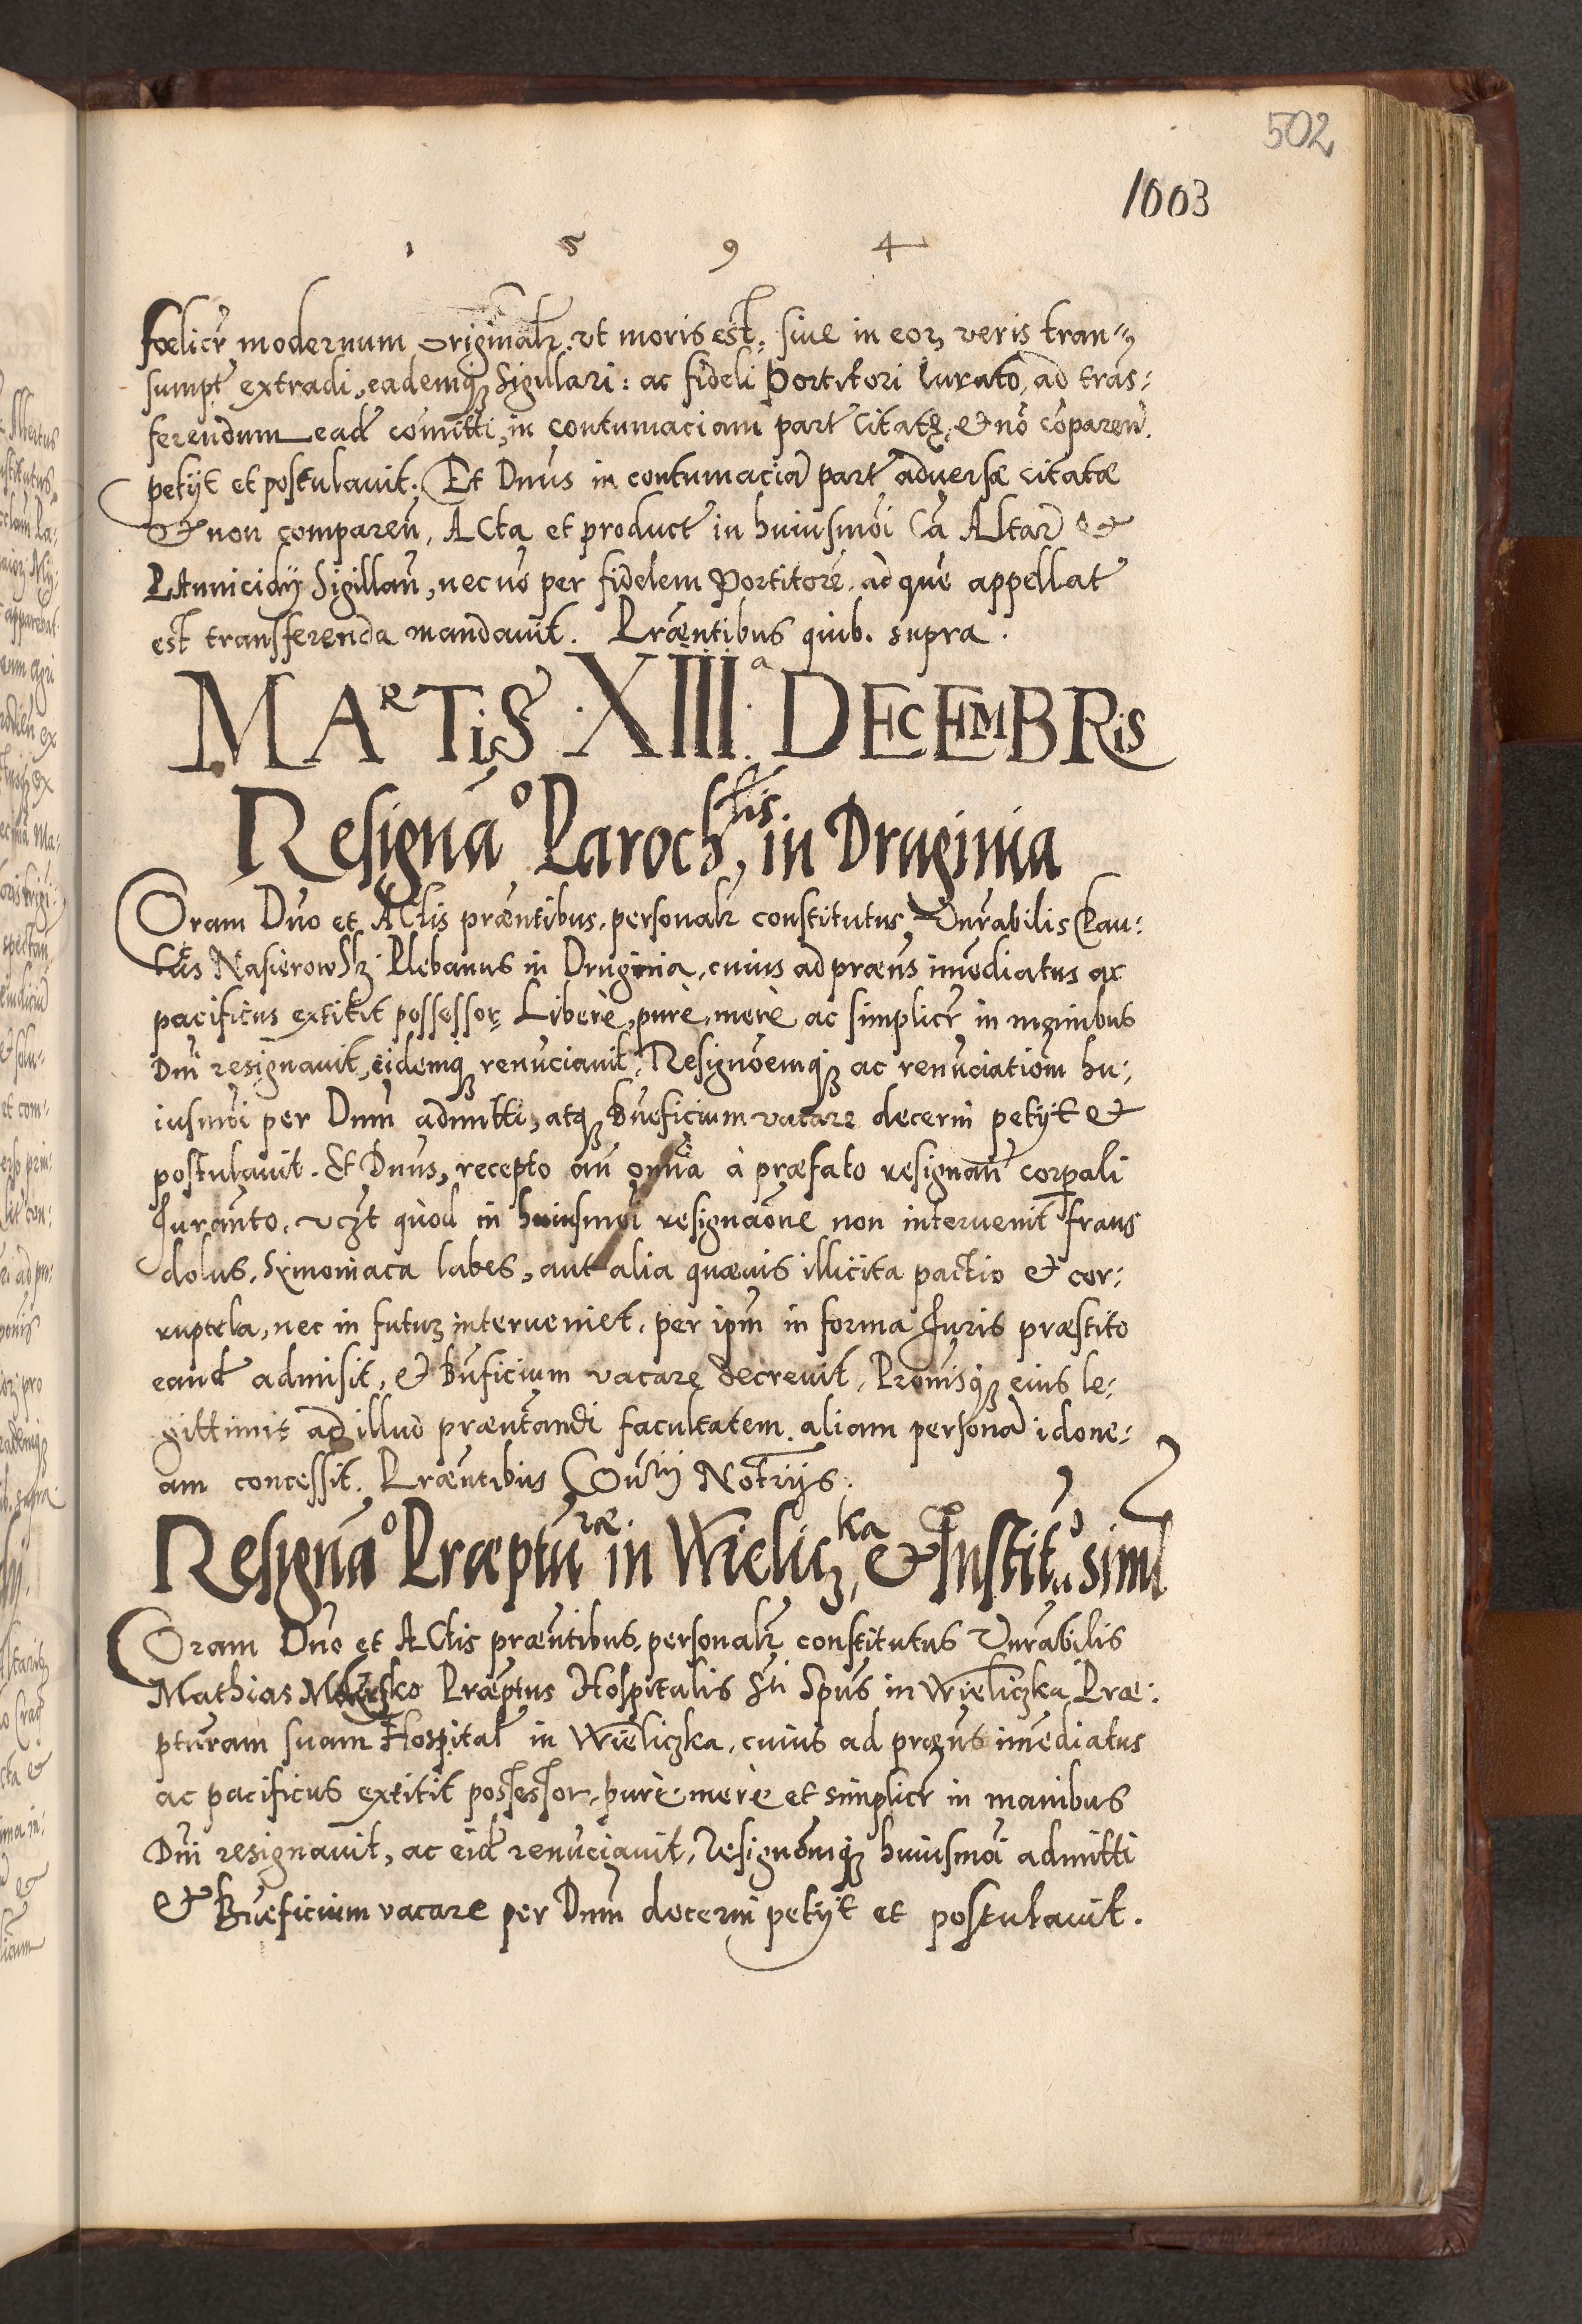 502
1003
1 5 9 4
foelicr modernum originalr. vt moris est, siue in eor veris tran=
sumpt extradi, eademq sigillari: ac fideli Portitori Iurato, ad trãs:
ferendum ead comitti, in contumaciam part citatę, & nõ cõparen.
petyt et postulauit. Et Dnus in contumaciã part aduersæ citatæ
& non comparen, Acta et product in huiusmoi Cã Altar &
Panicidy Sigillan, necno per fidelem Portitorẽ ad quẽ appellat
est transferenda mandauit. Præntibus quib. supra.
MARTIS XIIIIa DECEMBRis
Resignao Parochlis, in Druginia
Coram Dno et Actis præntibus, personalr constitutus, Vnrabilis Lau:
Nasierowsk Plebanus in Druginia, cuius ad præns imediatus ac
pacificus extitit possessor, Liberè, purè, merè ac simplicr in manibus
Dni resignauit, eidemq renuciauit, Resignoemq ac renuciationi hu:
iusmoi per Dnm admitti, atq bneficium vacare decerni petyt &
postulauit. Et Dnus, recepto an omnia à præfato resignan corpali
Iuranto, vczt quòd in huiusmoi resignaone non interuenit fraus
dolus, Symoniaca labes, aut alia quæuis illicita pactio & cor:
ruptela, nec in futur interueniet, per ipm in forma Iuris præstito
eand admisit, & bnficium vacare decreuit, Prouisq eius le:
gittimis ad illud præntandi facultatem aliam personã idone:
am concessit. Præntibus Coñry Notrijs.
Resignao Præpturæ in Wieliczka, & Institu simul
Coram Dno et Actis præntibus, personalr constitutus Vnrabilis
Mathias Præptus Hospitalis Sti Spus in Wieliczka Præ:
pturam suam Hospital in Wieliczka, cuius ad præns imediatus
ac pacificus extitit possessor, purè, merè et simplicr in manibus
Dni resignauit, ac eid renuciauit, Resignomq huiusmoi admitti
& Bneficium vacare per Dnm decerni petyt et postulauit.